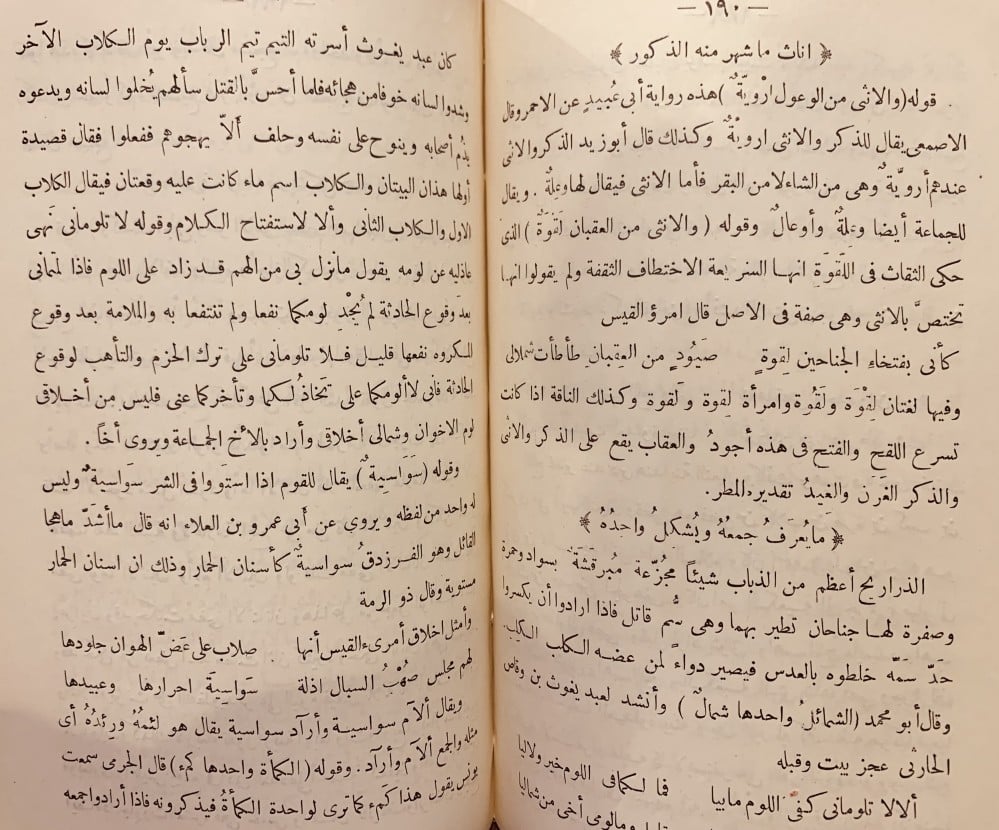 — ١٩٠ —
﴿ اناث ماشهر منه الذكور ﴾
قوله (والانثى من الوعول ارْوِيَّةٌ) هذه رواية أبى عُبيدٍ عن الاحمر وقال
الاصمعى يقال للذكر والانثى اروِيَّةٌ وكذلك قال أبو زيد الذكر والانثى
عندهم أرويَّةٌ وهى من الشاء لا من البقر فأما الانثى فيقال لها وعِلةٌ . ويقال
للجماعة أيضا وعِلةٌ وأوعالٌ وقوله ( والانثى من العقبان لَقْوَةٌ ) الذى
حكى الثقات فى اللَّقوَةِ انها السريعة الاختطاف الثقفة ولم يقولوا انها
تختصَّ بالانثى وهى صفة فى الاصل قال امرؤ القيس
كأنى بفتخاءِ الجناحين لِقوةٍ صَيُودٍ من العِقبانِ طأطأت شملالى
وفيها لغتان لِقْوَة ولَقْوة وامرأة لِقوة ولَقوة وكذلك الناقة اذا كانت
تسرع اللقح والفتح فى هذه أجودُ والعقاب يقع على الذكر والانثى
والذكر الغَرَن والغِيدُ تقديره المطر.
﴿ مايُعرَفُ جمعُهُ ويُشكلُ واحدُهُ ﴾
الذراريح أعظم من الذباب شيئاً مجُزّعة مُبرقَشَةٌ بسواد وحمرة
وصفرة لهـا جناحان تطير بهما وهى سُّم قاتل فاذا ارادوا أن يكسروا
حَدّ سَمّه خلطوه بالعدس فيصير دواءً لمن عضه الكلب الكلِب
وقال أبو محمد (الشمائلُ واحدها شمالٌ ) وأنشد لعبد يغوث بن وقاص
الحارثى عجز بيت وقبله
ألالا تلومانى كفى اللوم مابيا فما لكما فى اللوم خير ولاليا
ومالومى أخى من شماليا
كان عبد يغوث أسرته التيم تيم الرباب يوم الكلاب الآخر
وشدوا لسانه خوفا من هجائه فلما أحسَّ بالقتل سألهم يُخلوا لسانه ويدعوه
يذُم أصحابه وينوح على نفسه وحلف ألاّ يهجوهم ففعلوا فقال قصيدة
أولها هذان البيتان والكلاب اسم ماء كانت عليه وقعتان فيقال الكلاب
الاول والكلاب الثانى وألا لاستفتاح الكلام وقوله لا تلومانى نَهى
عاذليه عن لومه يقول مانزل بى من الهم قد زاد على اللوم فاذا لمتمانى
بعد وقوع الحادثة لم يُجْدِ لومكما نفعا ولم تنتفعا به والملامة بعد وقوع
المكروه نفعها قليل فلا تلومانى على ترك الحزم والتأهب لوقوع
الحادثة فانى لا ألومكما على تخاذُلكما وتأخركما عنى فليس من أخلاقى
لوم الاخوان وشمالى أخلاقى وأراد بالأخ الجماعة ويروى أخاً .
وقوله (سَوَاسِيةٌ) يقال للقوم اذا استَووا فى الشر سَواسيةٌ وليس
له واحد من لفظه ويروى عن أبى عمرو بن العلاء انه قال ماأشدّ ماهجا
القائل وهو الفرزدق سواسيةٌ كأسنان الحمار وذلك ان اسنان الحمار
مستوية وقال ذو الرمة
وأمثل اخلاق أمرىء القيس أنها صلاب على عَضّ الهوان جلودها
لهم مجلس صُهْبُ السبال اذلة سَواسِيَة احرارها وعبيدها
ويقال ألآم سواسية وأرآد سواسية يقال هو لئمُهُ ورِئدُهُ أى
مثله والجمع ألآم وأرآد . وقوله (الكمأة واحدها كمء) قال الجرمى سمعت
يونس يقول هذا كمء كماترى لواحدة الكمأة فيذكرونه فاذا أرادوا جمعه